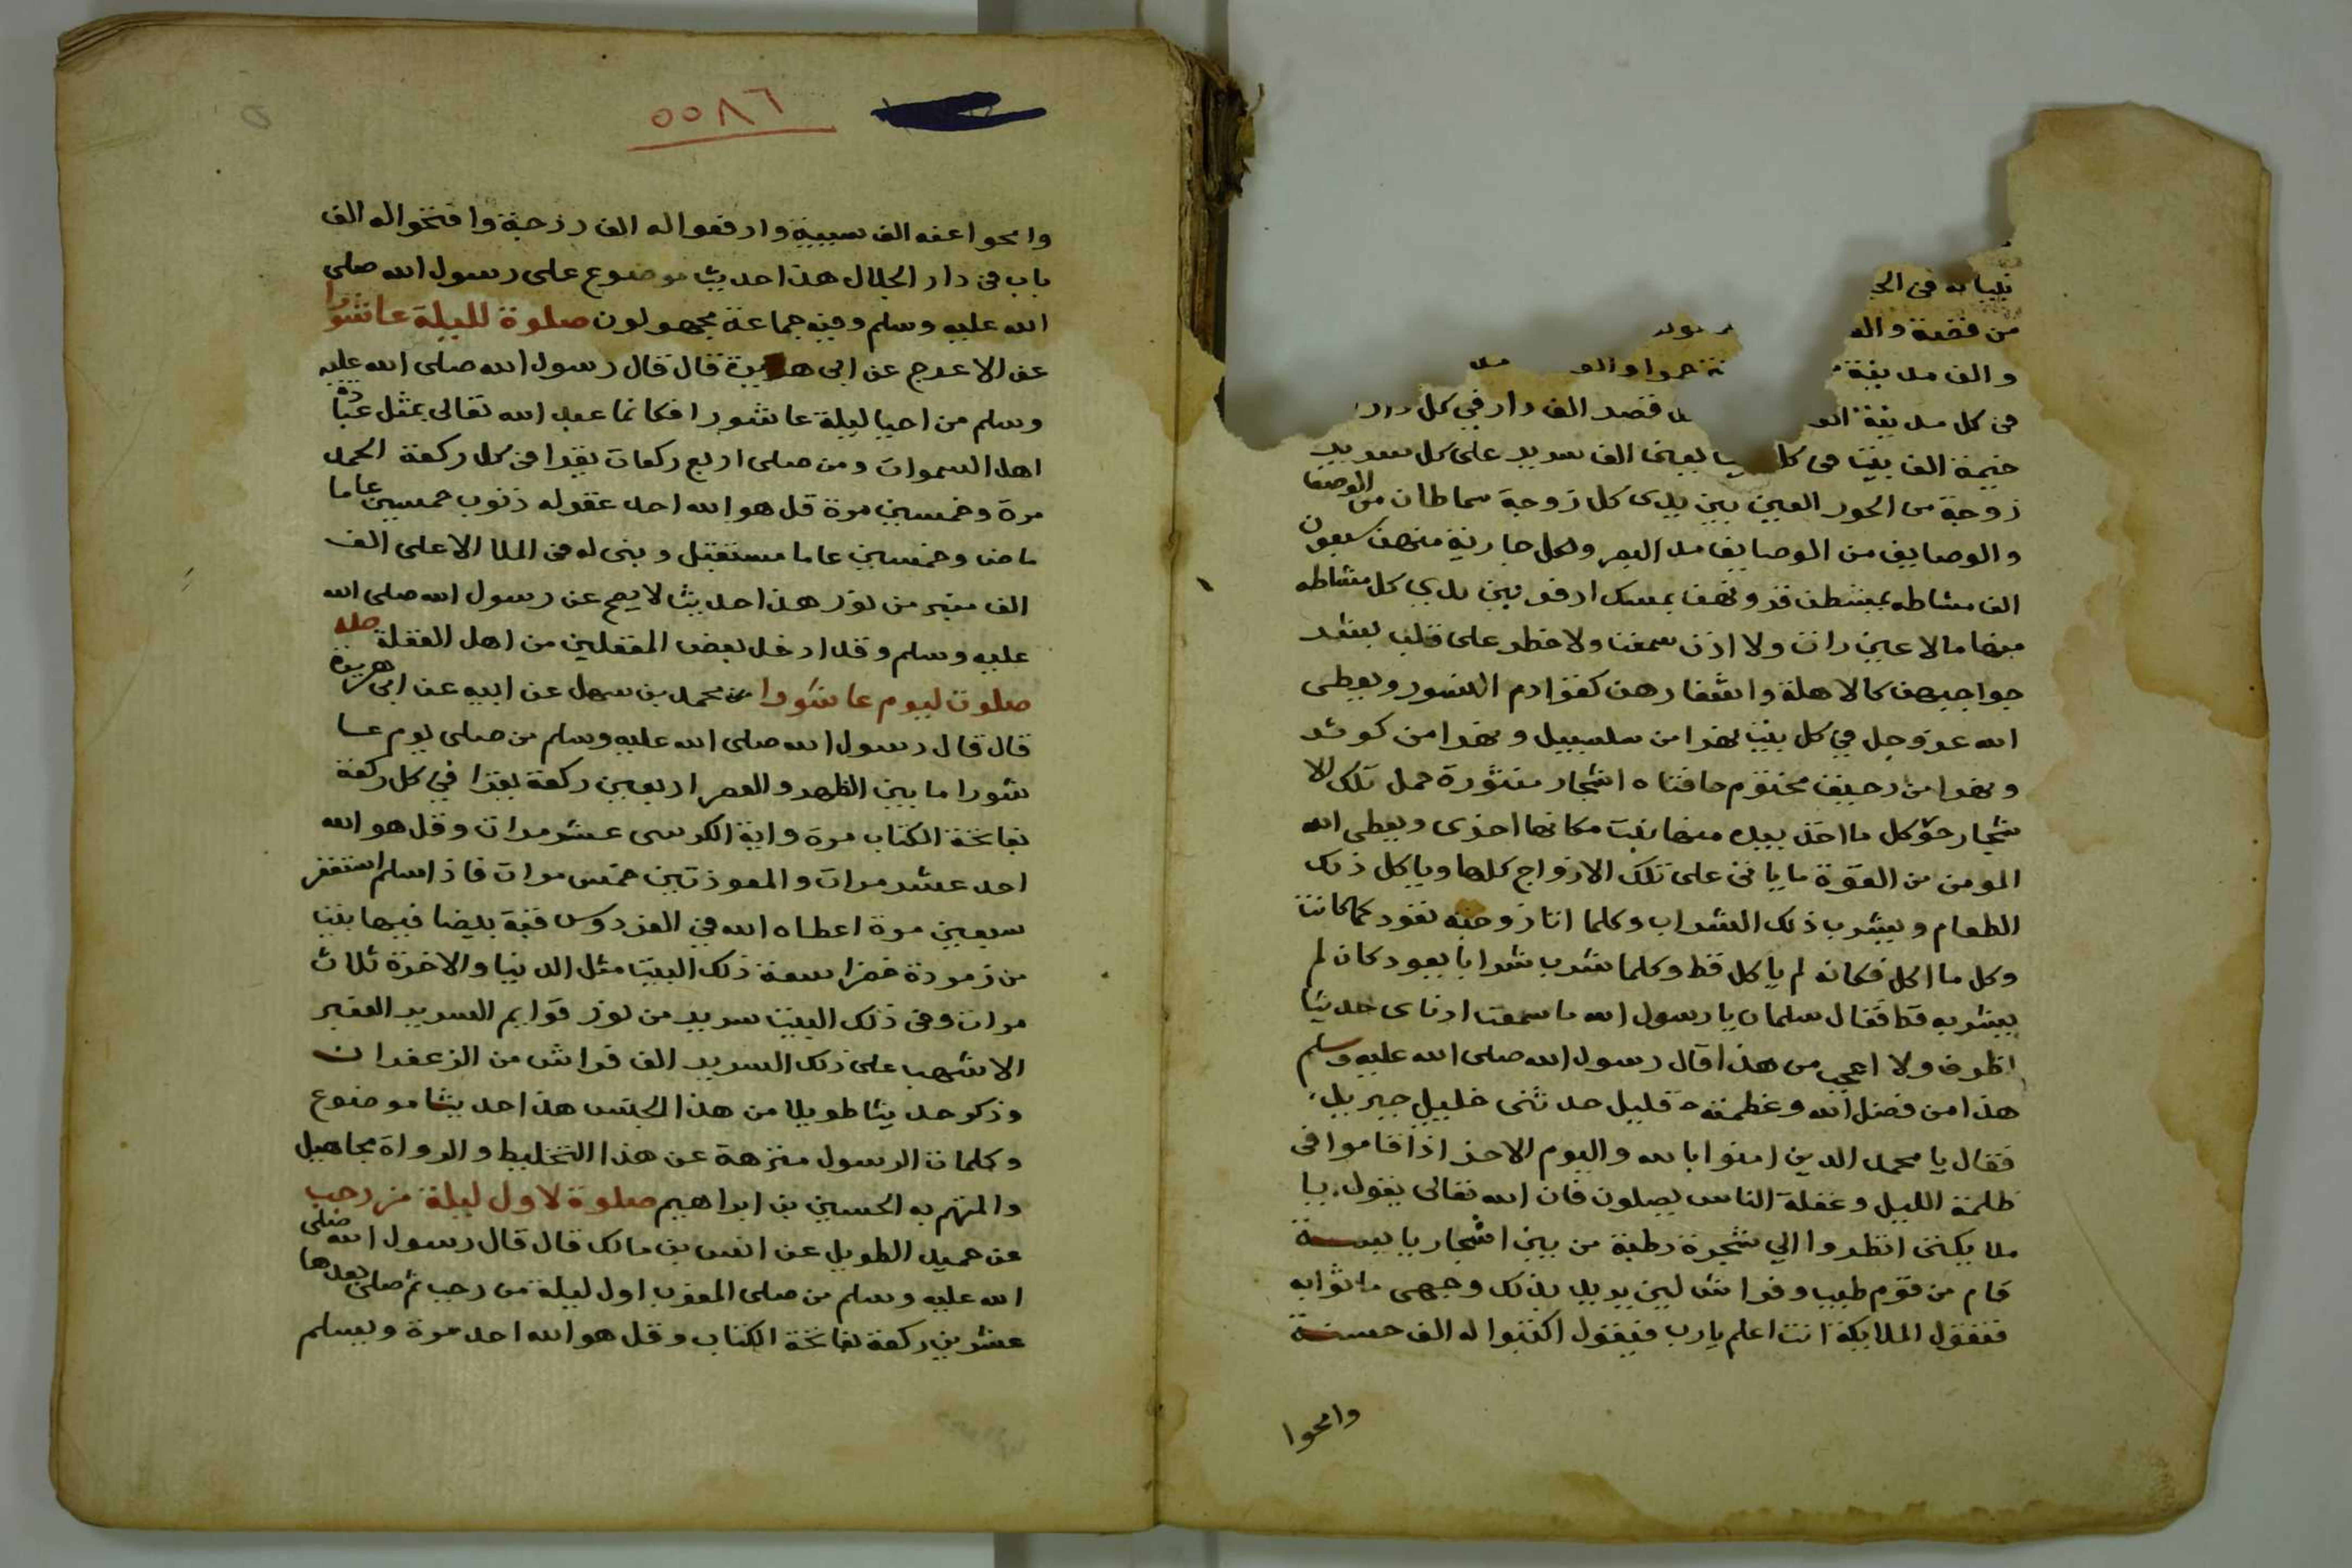 ثيابه في الج
من فضة والف
والف مدينة حمرا والف
في كل مدينة الف قصر الف دار في كل دار
خيمة الف بيت في كل بيت يعنى الف سرير على كل سرير
زوجة من الحور العين بين يدى كل زوجة سماطان من الوصفا
والوصايف من الوصايف مد البصر ولكل جارية منهن سبعون
الف مشاطه يمشطن قرونهن بمسك ادفر بين يدي كل مشاطه
منها مالا عين رات ولا اذن سمعت ولا خطر على قلب بشر
حواجبهن كالاهلة واشفارهن كقوادم النسور ويعطى
الله عز وجل في كل بيت نهرا من سلسبيل ونهرا من كوثر
ونهرا من رحيق مختوم حافتاه اشجار منثورة حمل تلك الا
شجار حق كل ما اخذ بيده منها نبت مكانها اخرى ويعطى الله
المومن من القوة ما ياتى على تلك الازواج كلها وياكل ذلك
الطعام ويشرب ذلك الشراب وكلما اتا زوجته تعود كما كانت
وكل ما اكل فكانه لم ياكل قط وكلما شرب شرابا يعود كان لم
يشربه قط فقال سلمان يا رسول الله ما سمعت اذناى حديثا
اظرف ولا اعجب من هذا قال رسول الله صلى الله عليه وسلم
هذا من فضل الله وعظمته قليل حدثنى خليلي جبريل
فقال يا محمد الذين امنوا بالله واليوم الاخر اذا قاموا في
ظلمة الليل وغفلة الناس يصلون فان الله تعالى يقول يا
ملايكتى انظروا الي شجرة رطبة من بين اشجار يابسة
قام من قوم طيب وفراش لين يريد بذلك وجهى ما ثوابه
فتقول الملايكة انت اعلم يارب فيقول اكتبوا له الف حسنة
وامحوا
٥٥٨٦
وامحوا عنه الف سيية وارفعوا له الف درجة وافتحوا له الف
باب في دار الجلال هذا حديث موضوع على رسول الله صلى
الله عليه وسلم وفيه جماعة مجهولون صلوة لليلة عاشورا
عن الاعرج عن ابى هريرة قال قال رسول الله صلى الله عليه
وسلم من احيا ليلة عاشورا فكانما عبد الله تعالى بمثل عبادة
اهل السموات ومن صلى اربع ركعات يقرا في كل ركعة الحمد
مرة وخمسين مرة قل هو الله احد غفر له ذنوب خمسين عاما
ماض وخمسين عاما مستقبل وبنى له في الملا الاعلى الف
الف منبر من نور هذا حديث لا يصح عن رسول الله صلى الله
عليه وسلم وقد ادخل بعض المغفلين من اهل الغفلة
صلوة ليوم عاشورا عن محمد بن سهل عن ابيه عن ابى هريرة
قال قال رسول الله صلى الله عليه وسلم من صلى يوم عا
شورا ما بين الظهر والعصر اربعين ركعة يقرا في كل ركعة
بفاتحة الكتاب مرة واية الكرسى عشر مرات وقل هو الله
احد عشر مرات والمعوذتين خمس مرات فاذا سلم استغفر
سبعين مرة اعطاه الله في الفردوس قبة بيضا فيها بيت
من زمردة خضرا سعة ذلك البيت مثل الدنيا والاخرة ثلاث
مرات وفي ذلك البيت سرير من نور قوايم السرير العنبر
الاشهب على ذلك السرير الف فراش من الزعفران
وذكر حديثا طويلا من هذا الجنس هذا حديث موضوع
وكلمات الرسول منزهة عن هذا التخليط والرواة مجاهيل
والمتهم به الحسين بن ابراهيم صلوة لاول ليلة من رجب
عن حميد الطويل عن انس بن مالك قال قال رسول الله صلى
الله عليه وسلم من صلى المغرب اول ليلة من رجب ثم صلى بعدها
عشرين ركعة بفاتحة الكتاب وقل هو الله احد مرة ويسلم